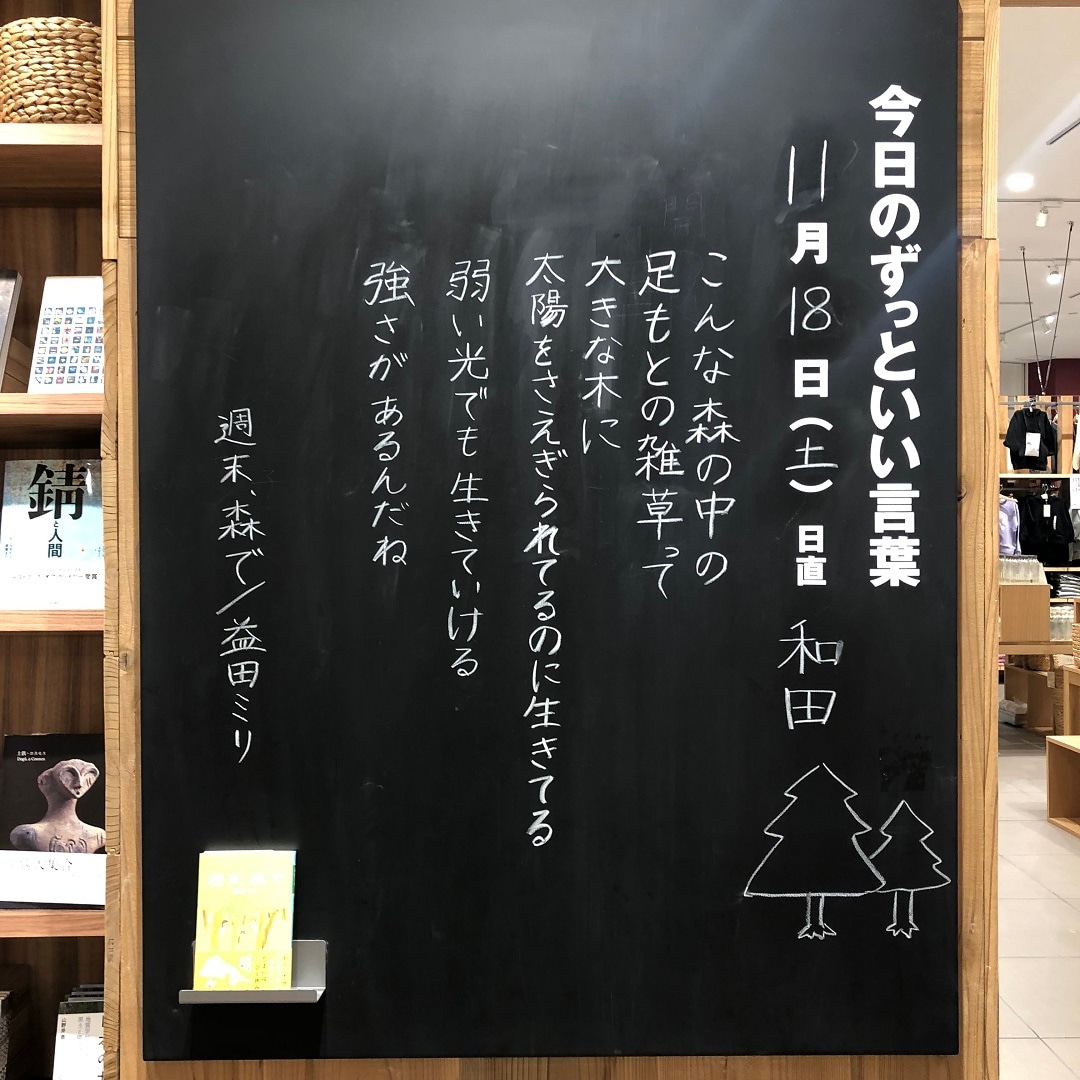 今日のずっといい言葉
11月18日(土) 日直 和田
こんな森の中の
足もとの雑草って
大きな木に
太陽をさえぎられてるのに生きてる
弱い光でも生きていける
強さがあるんだね
週末、森で/益田ミリ
錆と人間